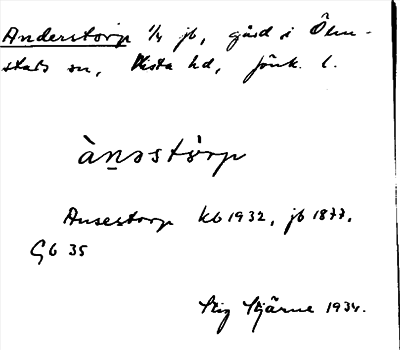 Anderstorp 1/4 jb, gård i Ölm-
stads sn, Vista hd, Jönk. l.
ànəstòrp
Ansestorp kb 1932, jb 1877,
Gb 35
Stig Stjärne 1934.